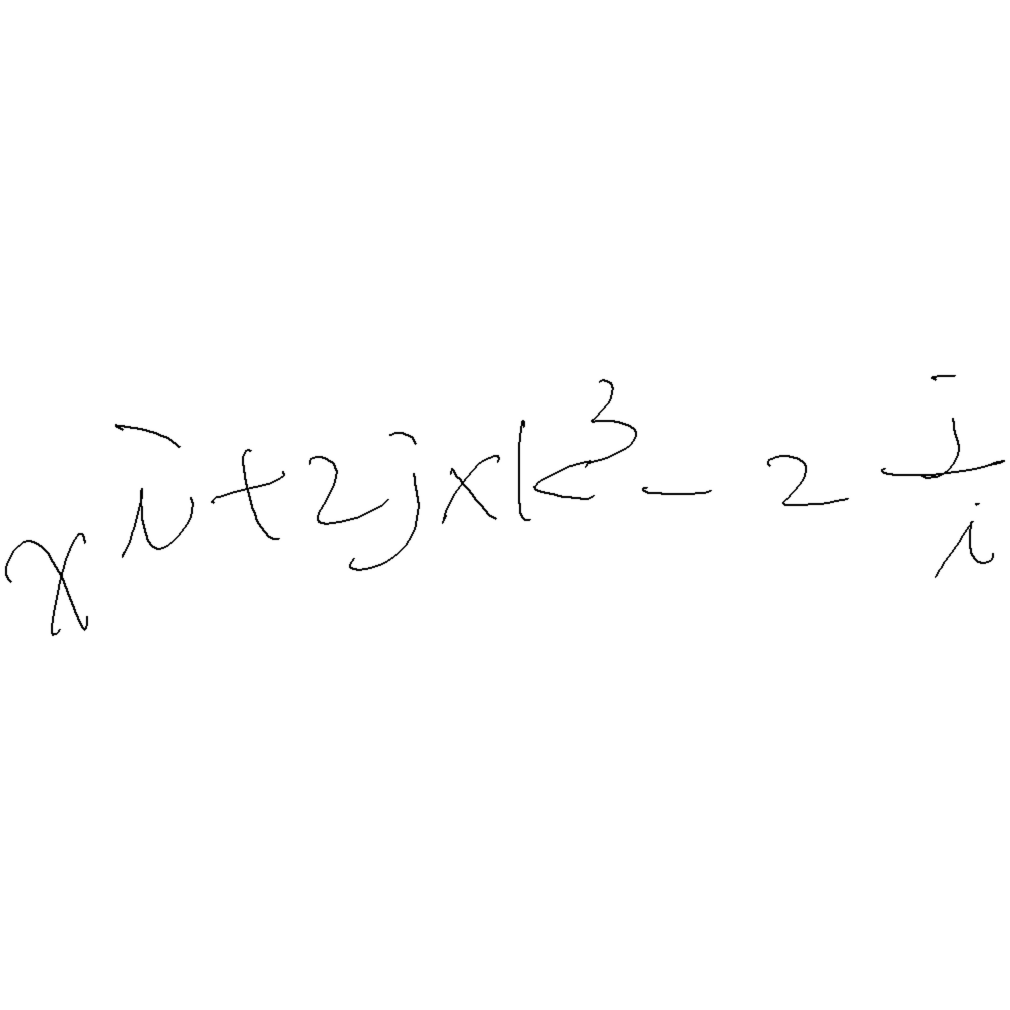 x^i + 2j × k^3 - 2 \frac{j}{i}